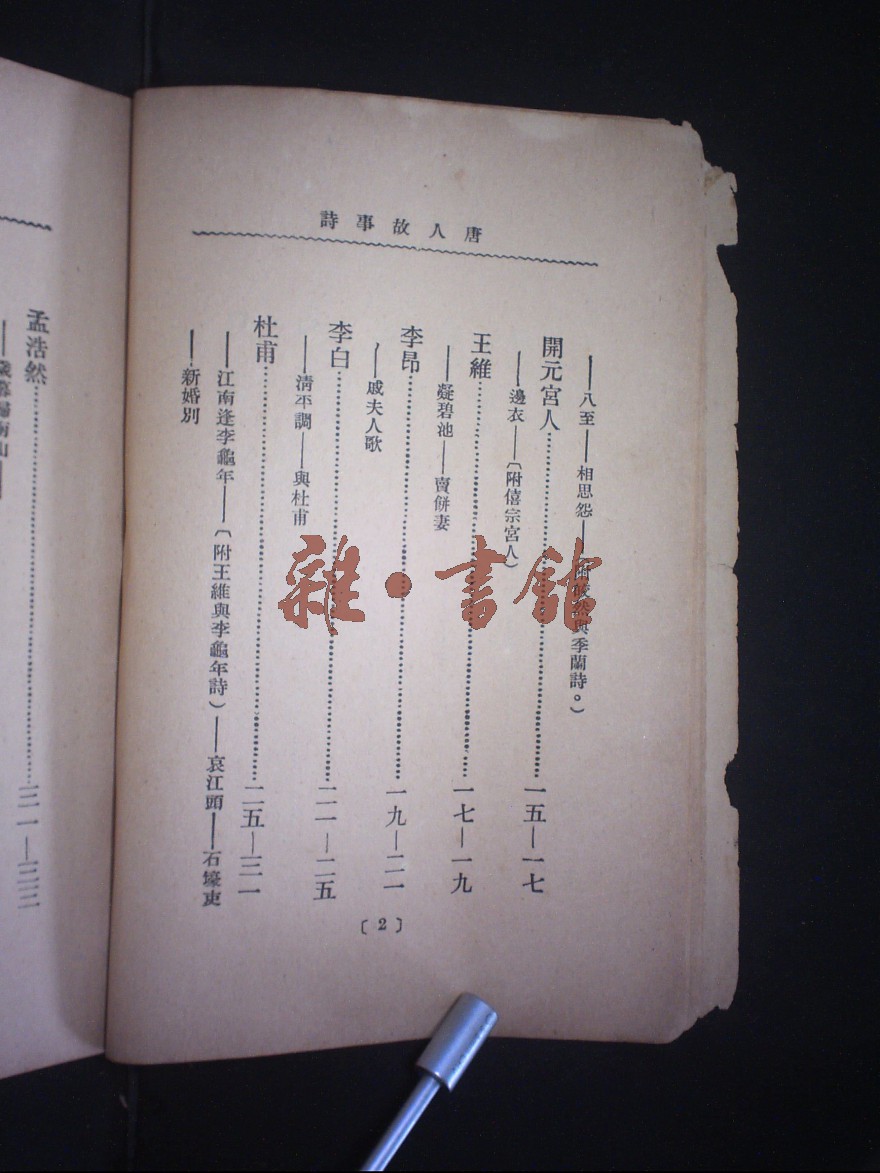 唐人故事詩
——八至——相思怨——(附皎然與季蘭詩。)
開元宮人………一五—一七
——邊衣——(附僖宗宮人)
王維………一七—一九
——凝碧池——賣餅妻
李昂………一九—二一
——戚夫人歌
李白………二一—二五
——清平調——與杜甫
杜甫………二五—三一
——江南逢李龜年——(附王維與李龜年詩)——哀江頭——石壕吏
——新婚別
〔2〕
孟浩然………三一—三三
——歲暮歸南山——
雜·書館